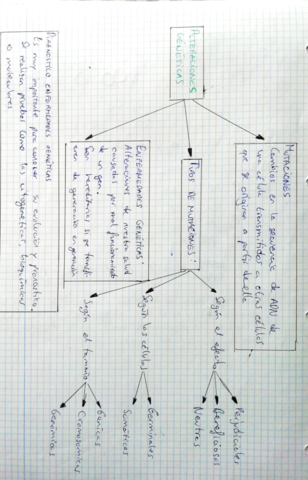 ALTERACIONES
GENÉTICAS
MUTACIONES
Cambios en la secuencia de ADN de
una célula transmitidos a otras células
que se originan a partir de ella
TIPOS DE MUTACIONES:
Según el efecto
Perjudiciales
Beneficiosas
Neutras
Según las células
Germinales
Somáticas
Según el tamaño
Génicas
Cromosómicas
Genómicas
ENFERMEDADES GENÉTICAS:
Alteraciones de nuestra salud
causadas por mal funcionamiento
de un gen.
Son hereditarias si se transfi
eren de generación en generación
DIAGNÓSTICO ENFERMEDADES GENÉTICAS
Es muy importante para conocer su evolución y pronóstico.
Se realizan pruebas como las citogenéticas, bioquímicas
o moleculares